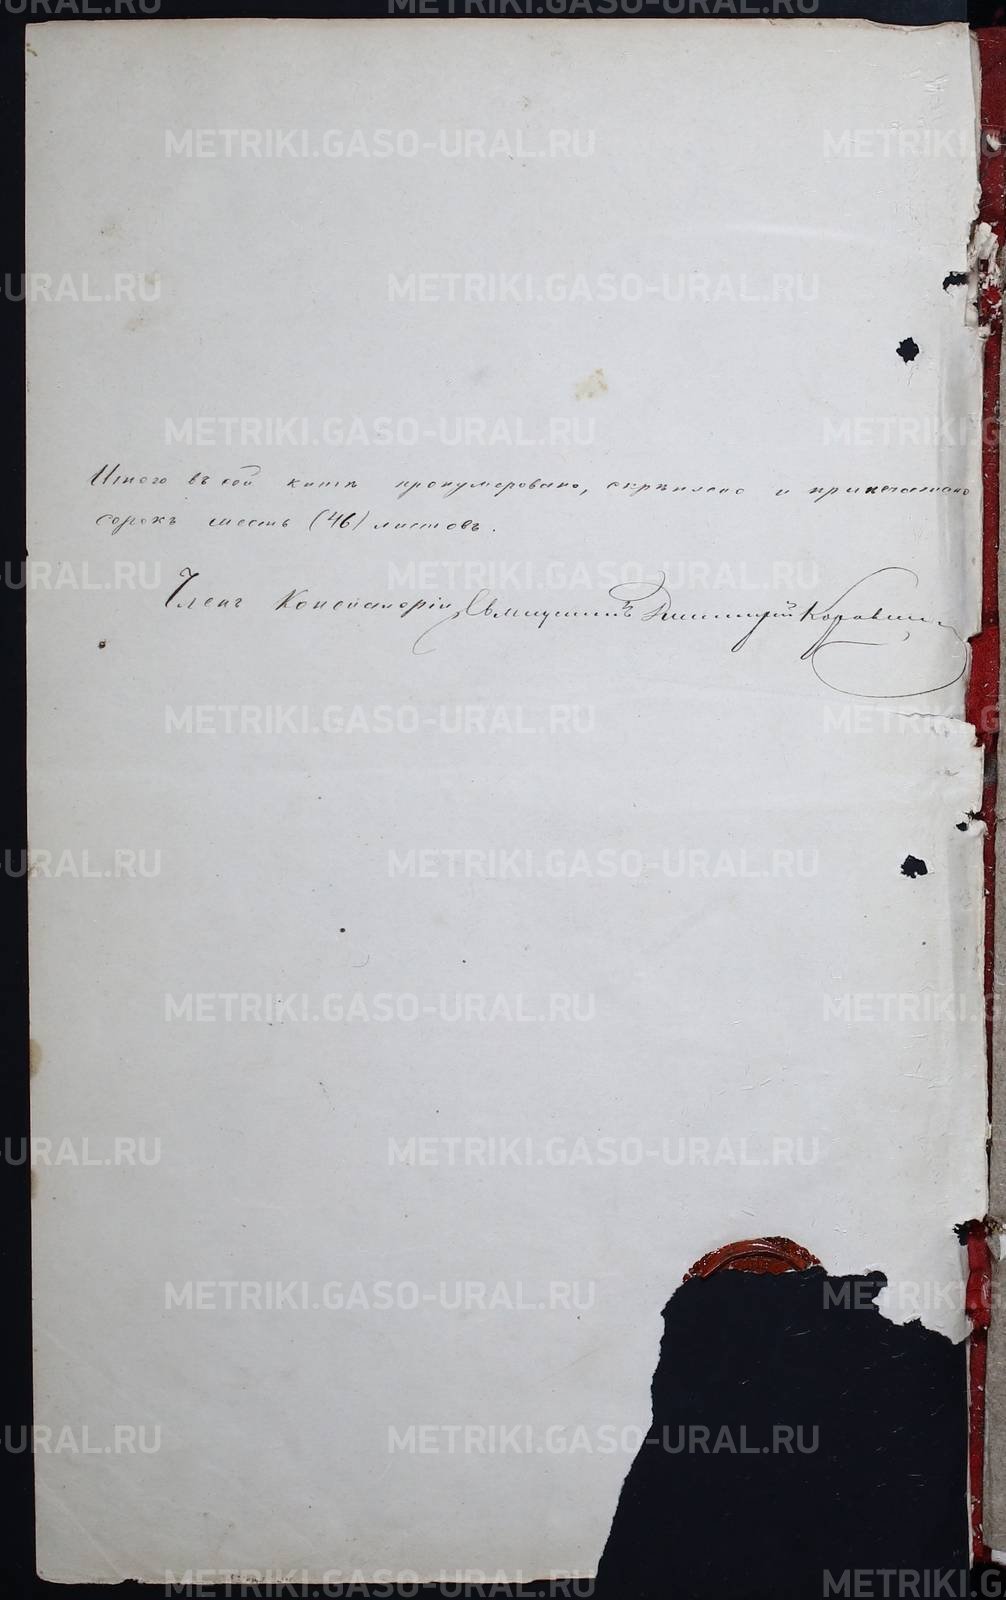 Итого въ сей книгѣ пронумеровано, скрѣплено и припечатано
сорокъ шесть (46) листовъ.
Членъ Консисторіи, Священникъ Димитрій
METRIKI.GASO-URAL.RU